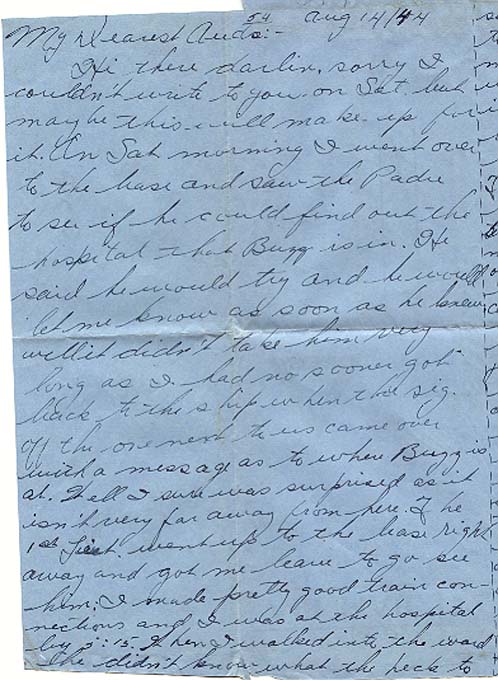 54 Aug 14/44
My Dearest Auds:-
Hi there darlin, sorry I
couldn't write to you on Sat. but
maybe this will make up for
it. On Sat morning I went over
to the base and saw the Padre
to see if he could find out the
hospital that Buzz is in. He
said he would try and he would
let me know as soon as he knew,
well it didn't take him very
long as I had no sooner got
back to the ship when the sig.
of the one next to us came over
with a message as to where Buzz is
at. Well I sure was surprised as it
isn't very far away from here. The
1st Lieut. went up to the base right
away and got me leave to go see
him; I made pretty good train con-
nections and I was at the hospital
by 3:15. When I walked into the ward
he didn't know what the heck to